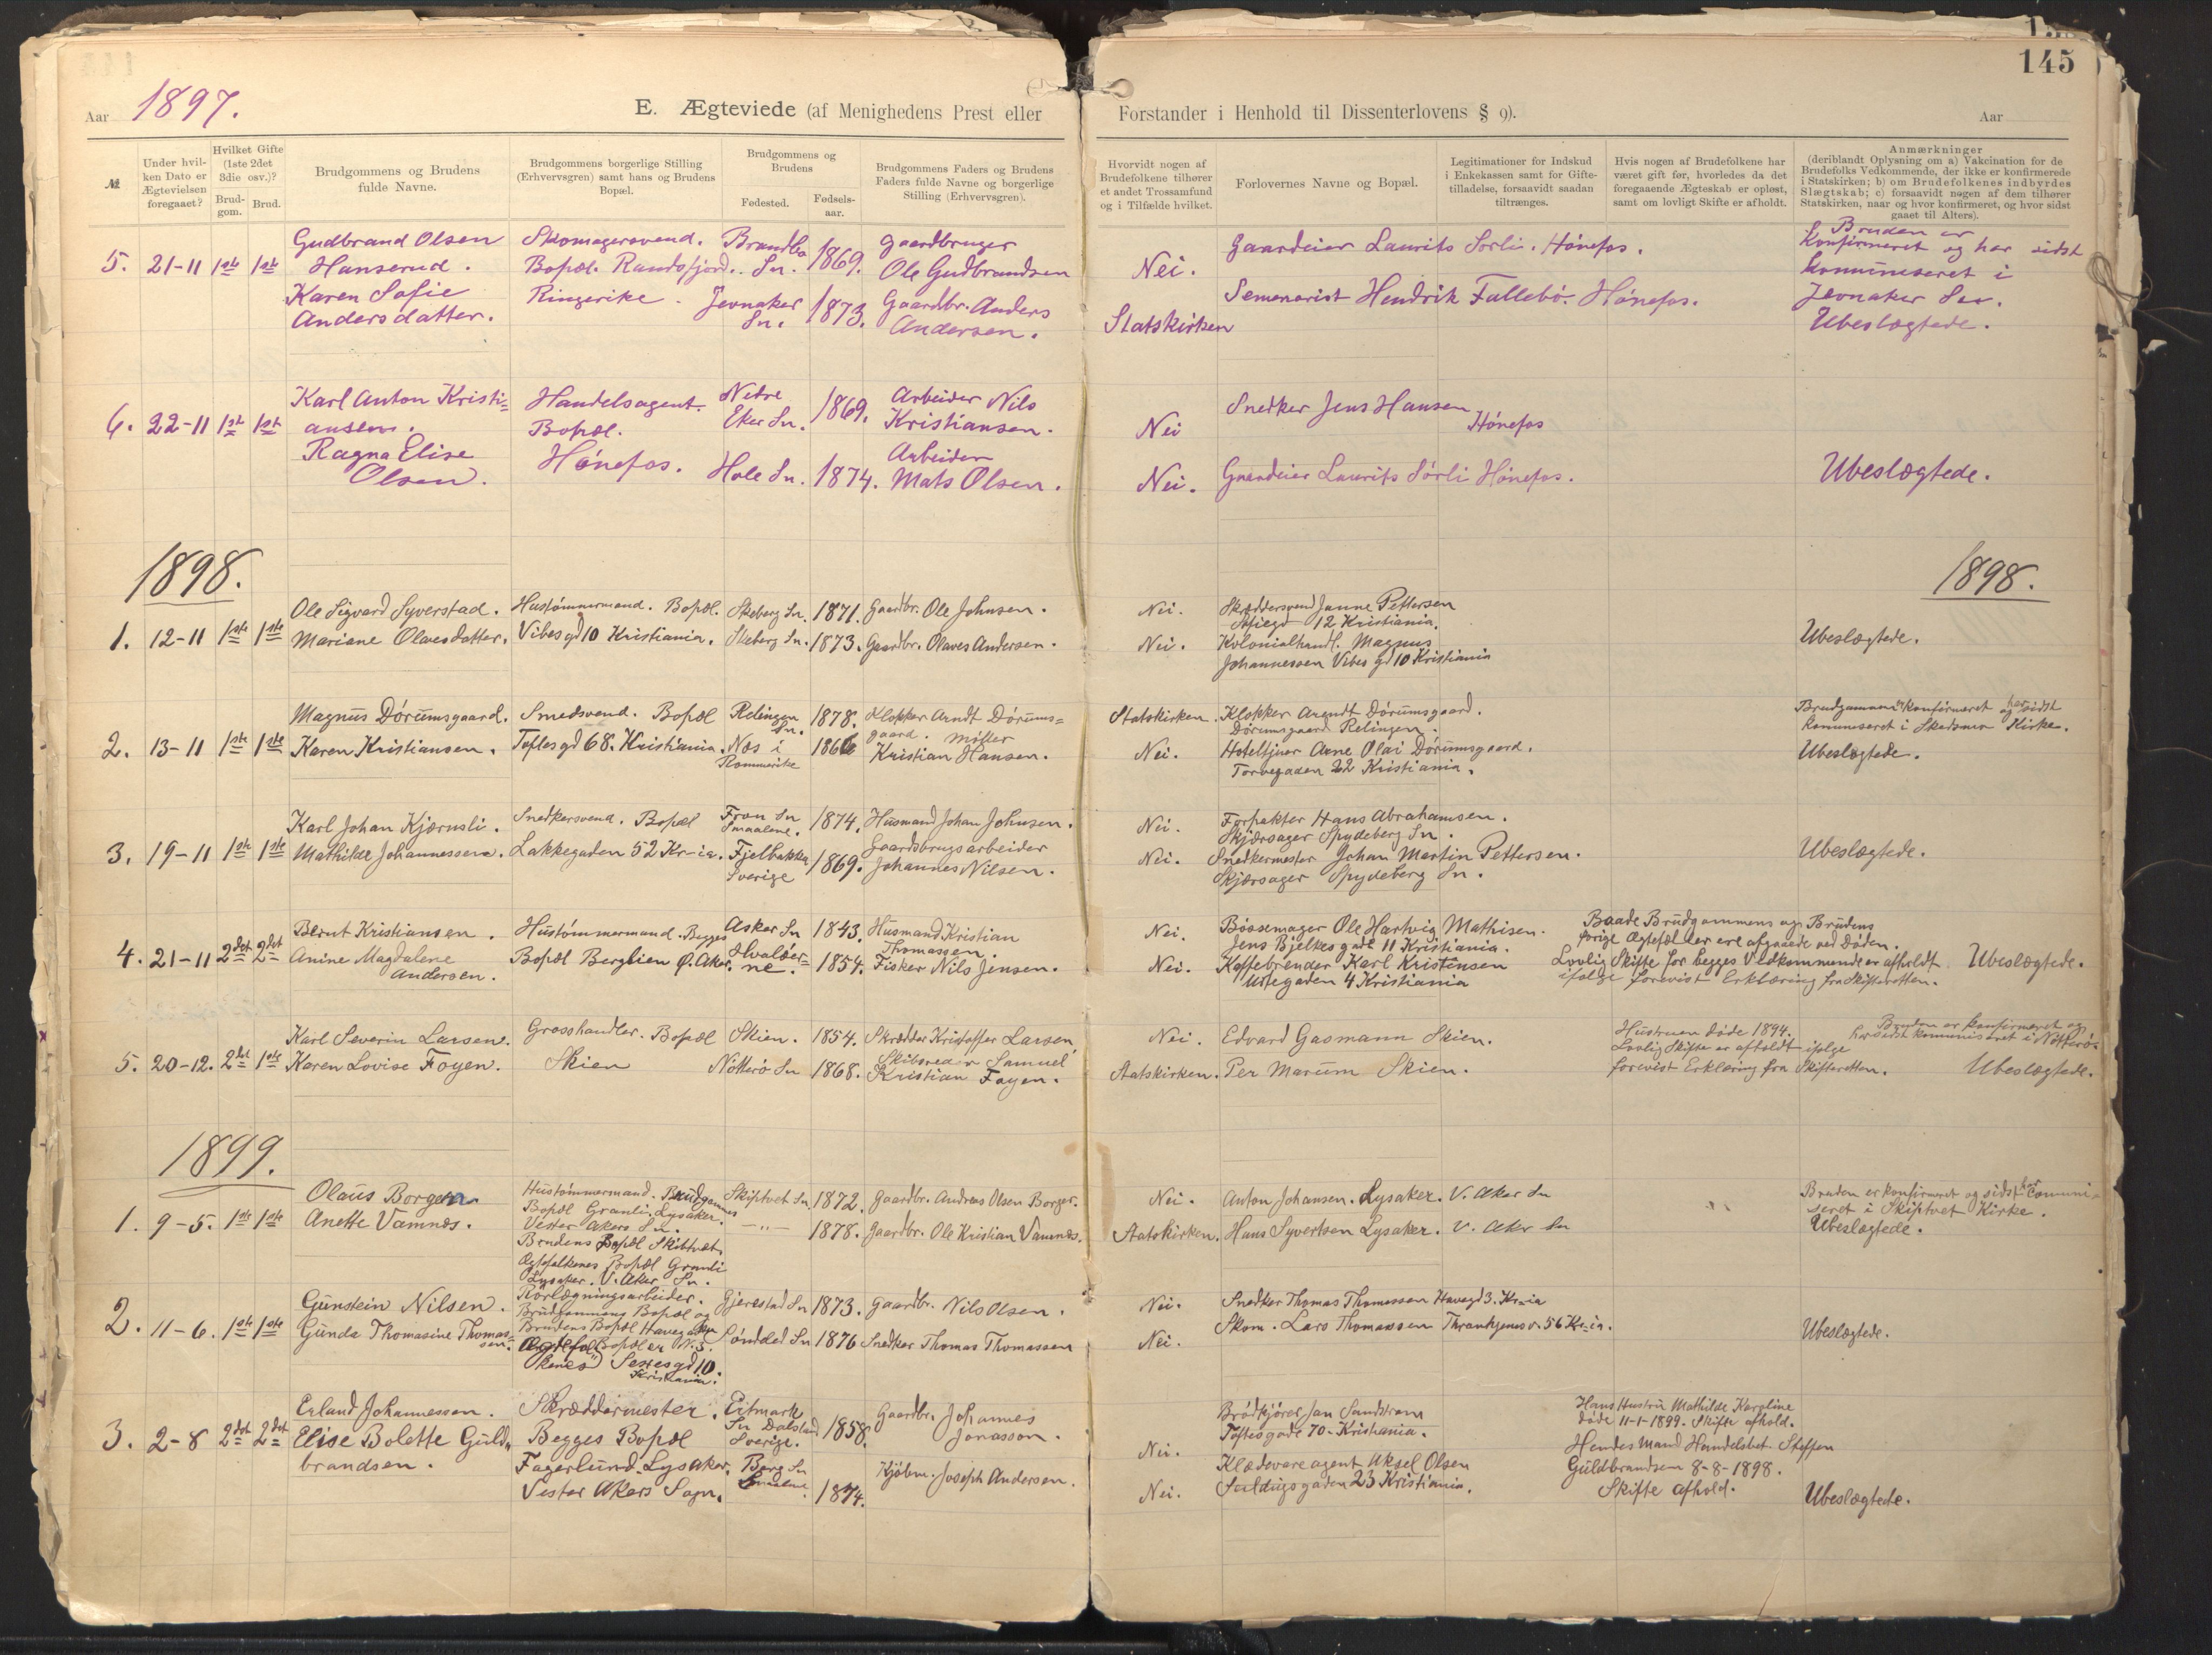 145
Aar 1897.
E. Ægteviede (af Menighedens Prest eller Forstander i Henhold til Dissenterlovens § 9).
Aar
№
Under hvil-
ken Dato er
Ægtevielsen
foregaaet?
Hvilket Gifte
(1ste 2det
3die osv.)?
Brud-
gom.
Brud.
Brudgommens og Brudens
fulde Navne.
Brudgommens borgerlige Stilling
(Erhvervsgren) samt hans og Brudens
Bopæl.
Brudgommens og
Brudens
Fødested.
Fødsels-
aar.
Brudgommens Faders og Brudens
Faders fulde Navne og borgerlige
Stilling (Erhvervsgren).
Hvorvidt nogen af
Brudefolkene tilhører
et andet Trossamfund
og i Tilfælde hvilket.
Forlovernes Navne og Bopæl.
Legitimationer for Indskud
i Enkekassen samt for Gifte-
tilladelse, forsaavidt saadan
tiltrænges.
Hvis nogen af Brudefolkene har
været gift før, hvorledes da det
foregaaende Ægteskab er opløst,
samt om lovligt Skifte er afholdt.
Anmærkninger
(deriblandt Oplysning om a) Vakcination for de
Brudefolks Vedkommende, der ikke er konfirmerede
i Statskirken; b) om Brudefolkenes indbyrdes
Slægtskab; c) forsaavidt nogen af dem tilhører
Statskirken, naar og hvor konfirmeret, og hvor sidst
gaaet til Alters).
5. 21-11 1ste 1ste
Gudbrand Olsen
Hanserud.
Karen Sofie
Andersdatter.
Skomagersvend.
Bopæl. Randsfjord.
Ringerike.
Brandbo
Sn.
1869.
Jevnaker
Sn.
1873.
Gaardbruger
Ole Gudbrandsen
Gaardbr. Anders
Andersen.
Nei.
Statskirken
Gaardeier Laurits Sorli. Hónefos.
Semenarist Hendrik Fallebó. Hónefos.
Bruden er
Konfirmeret og har sidst
komuniseret i
Jevnaker Sn.
Ubeslægtede.
6. 22-11 1ste 1ste
Karl Anton Kristi=
ansen.
Ragna Elise
Olsen.
Handelsagent.
Bopæl.
Hónefos.
Nedre
Eker Sn.
1869.
Hole Sn. 1874.
Arbeider Nils
Kristiansen.
Arbeider
Mats Olsen.
Nei
Nei.
Snedker Jens Hansen
Hónefos
Gaardeier Laurits Sórli Hónefos.
Ubeslægtede.
1898.
1898.
1. 12-11 1ste 1ste
Ole Sigvard Syverstad.
Mariane Olavesdatter.
Hustómmermand. Bopæl.
Vibesgd 10 Kristiania.
Skeberg Sn. 1871.
Skeberg Sn. 1873.
Gaardbr. Ole Johnsen.
Gaardbr. Olaves Andersen.
Nei.
Nei.
Skræddersvend Janne Pettersen
12 Kristiania.
Kolonialhandl. Magnus
Johannessen Vibes gd 10 Kristiania
Ubeslægtede.
2. 13-11 1ste 1ste
Magnus Dórumsgaard.
Karen Kristiansen.
Smedsvend. Bopæl
Toftesgd 68. Kristiania.
Relingen
Sn.
1878.
Næs i
Rommerike
1866
Klokker Arndt Dórums=
gaard. Móller
Kristian Hansen.
Statskirken.
Nei.
Klokker Arendt Dórumsgaard.
Dórumsgaard Relingen.
Hoteltjner Arne Olai Dórumsgaard.
Torvegaden 22 Kristiania.
Brudgommen er konfirmeret og har sidst
komuniseret i Skedsmo Kirke.
Ubeslægtede.
3. 19-11 1ste 1ste
Karl Johan Kjærnsli.
Mathilde Johannessen.
Snedkersvend. Bopæl
Lakkegaden 52 Kr-ia.
Fron Sn
Smaalene.
1874.
Fjelbakka
Sverige
1869.
Husmand Johan Johnsen.
Gaardsbrugsarbeider
Johannes Nilsen.
Nei.
Nei.
Forpakter Hans Abrahamsen.
Skjærsager Spydeberg Sn.
Snedkermester Johan Martin Pettersen.
Skjærsager Spydeberg Sn.
Ubeslægtede.
4. 21-11 2det 2det
Bernt Kristiansen.
Anine Magdalene
Andersen.
Hustómmermand. Begges
Bopæl Berglien Ø. Aker.
Asker Sn 1843.
Hvalóer=
ne. 1854.
Husmand Kristian
Thomassen.
Fisker Nils Jensen.
Nei.
Nei.
Bóssemager Ole Hartvig Mathisen.
Jens Bjelkes gade 11 Kristiania.
Kaffebrender Karl Kristensen
Urtegaden 4 Kristiania
Baade Brudgommens og Brudens
forige Ægtefæller ere afgaaede ved Dóden.
Lovlig Skifte for begges Vedkommende er afholdt
ifolge forevist Erklæring fra Skifteretten.
Ubeslægtede.
5. 20-12. 2det 1ste
Karl Severin Larsen.
Karen Lovise Foyen.
Grosshandler. Bopæl
Skien
Skien. 1854.
Nótteró Sn 1868.
Skrædder Kristoffer Larsen
Skibsreder Samuel
Kristian Foyen.
Nei.
Statskirken.
Edvard Gasmann Skien.
Per Marum Skien.
Hustruen dóde 1894.
Lovlig Skifte er afholdt ifolge
forevist Erklæring fra Skifteretten.
Bruden er konfirmeret og
har sidst komuniseret i Nótteró.
Ubeslægtede.
1899.
1. 9-5. 1ste 1ste
Olaus Borgen
Anette Vamnæs.
Hustómmermand. Brudgommens
Bopæl Granli, Lysaker.
Vester Akers Sn.
Brudens Bopæl Skiftvet.
Ægtefolkenes Bopæl Granli
Lysaker. V. Aker Sn.
Skiptvet Sn. 1872.
—"— 1878.
Gaardbr. Andreas Olsen Borger.
Gaardbr. Ole Kristian Vamnæs.
Nei.
Statskirken.
Anton Johansen. Lysaker. V. Aker Sn
Hans Syvertsen Lysaker. V. Aker Sn
Bruden er konfirmeret og sidst har comuni-
seret i Skiptvet Kirke.
Ubeslægtede.
2. 11-6. 1ste 1ste
Gunstein Nilsen.
Gunda Thomasine Thomas=
sen.
Rórlægningsarbeider.
Brudgommens Bopæl og
Brudens Bopæl Havegaden
Bopæl er
Kristiania.
Gjerestad Sn 1873.
Sóndeled Sn 1876
Gaardbr. Nils Olsen.
Snedker Thomas Thomassen
Nei.
Nei.
Snedker Thomas Thomassen Havegd 3. Kr-ia
Skom. Lars Thomassen Thranhjemsv. 56 Kr-ia.
Ubeslægtede.
3. 2-8 2det 2det
Erland Johannessen.
Elise Bolette Guld=
brandsen.
Skræddermester.
Begges Bopæl
Fagerlund. Lysaker.
Vester Akers Sogn.
Eitmark
Sn Dalsland
Sverige.
1858.
Borg Sn
Smaalene
1874.
Gaardbr. Johannes
Jonasson.
Kjóbm. Joseph Andersen.
Nei.
Nei.
Bródkjórer Jan Sandstrom
Toftesgade 70. Kristiania.
Klædevareagent Aksel Olsen
23 Kristiania.
Hans Hustru Mathilde Karoline
dóde 11-1-1899. Skifte afhold.
Hendes Mand Handelsbet. Steffen
Guldbrandsen 8-8-1898.
Skifte afhold.
Ubeslægtede.